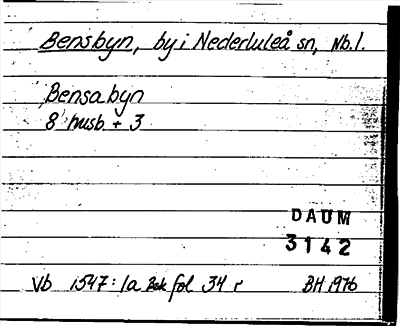 Bensbyn, by i Nederluleå sn, Nb.l.
Bensabyn
8 husb + 3
DAUM
3142
Vb 1547:1a Bsk fol 34 r BH 1976